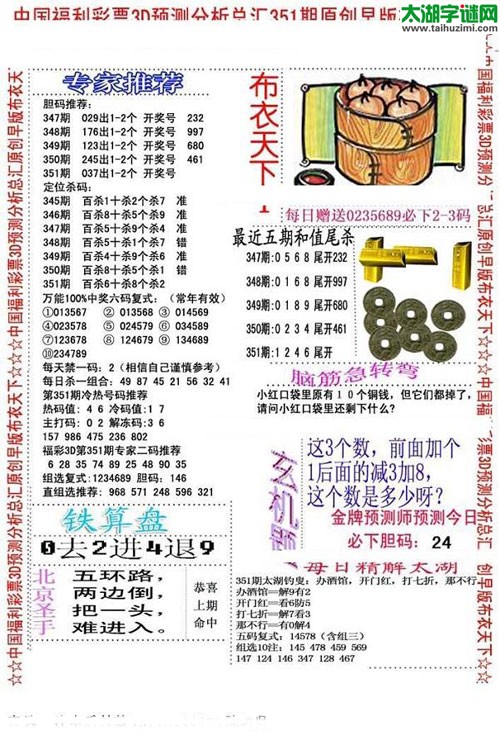 太湖字谜网
www.taihuzimi.com
中国福利彩票3D预测分析总汇351期原创早版
专家推荐
胆码推荐:
347期 029出1-2个 开奖号 232
348期 176出1-2个 开奖号 997
349期 123出1-2个 开奖号 680
350期 245出1-2个 开奖号 461
351期 037出1-2个 开奖号
定位杀码:
345期 百杀1十杀2个杀7 准
346期 百杀9十杀5个杀4 准
347期 百杀5十杀1个杀7 错
348期 百杀4十杀5个杀9 准
349期 百杀5十杀7个杀1 错
350期 百杀8十杀5个杀1 错
351期 百杀6十杀8个杀2
万能100%中奖六码复式:(常年有效)
①013567 ②013568 ③014569
④023578 ⑤024579 ⑥034589
⑦123678 ⑧124679 ⑨134689
⑩234789
每天禁一码:2(相信自己谨慎参考)
每日杀一组合: 49 87 45 21 56 32 41
第351期冷热号码推荐
热码值: 4 6 冷码值:1 7
主打码: 0 2 解冻码:3 6
157 986 475 236 802
福彩3D第351期专家二码推荐
6 28 35 74 89 25 48 90 35
组选复式:1234689 胆码: 146
直组选推荐: 968 571 248 596 321
铁算盘
0去2进4退9
北京圣手
五环路,
两边倒,
把一头,
难进入。
恭喜
上期
命中
布衣天下
每日赠送0235689必下2-3码
最近五期和值尾杀
347期:0 5 6 8 尾开232
348期:0 1 6 8 尾开997
349期:0 1 8 9 尾开680
350期:0 2 3 4 尾开461
351期:1 2 4 6 尾开
脑筋急转弯
小红口袋里原有10个铜钱,但它们都掉了,
请问小红口袋里还剩下什么?
玄机
这3个数,前面加个
1后面的减3加8,
这个数是多少呀?
金牌预测师预测今日
必下胆码: 24
每日精解太湖
351期太湖钓叟:办酒馆,开门红,打七折,那不行
办酒馆==解9有2
开门红==看6防5
打七折==解7看3
那不行==有0解4
五码复式:14578(含组三)
组选10注: 145 478 459 569
147 124 146 347 128 467
☆☆中国福利彩票3D预测分析总汇原创早版布衣天下☆☆☆中国福利彩票3D预测分析总汇原创早版布衣天